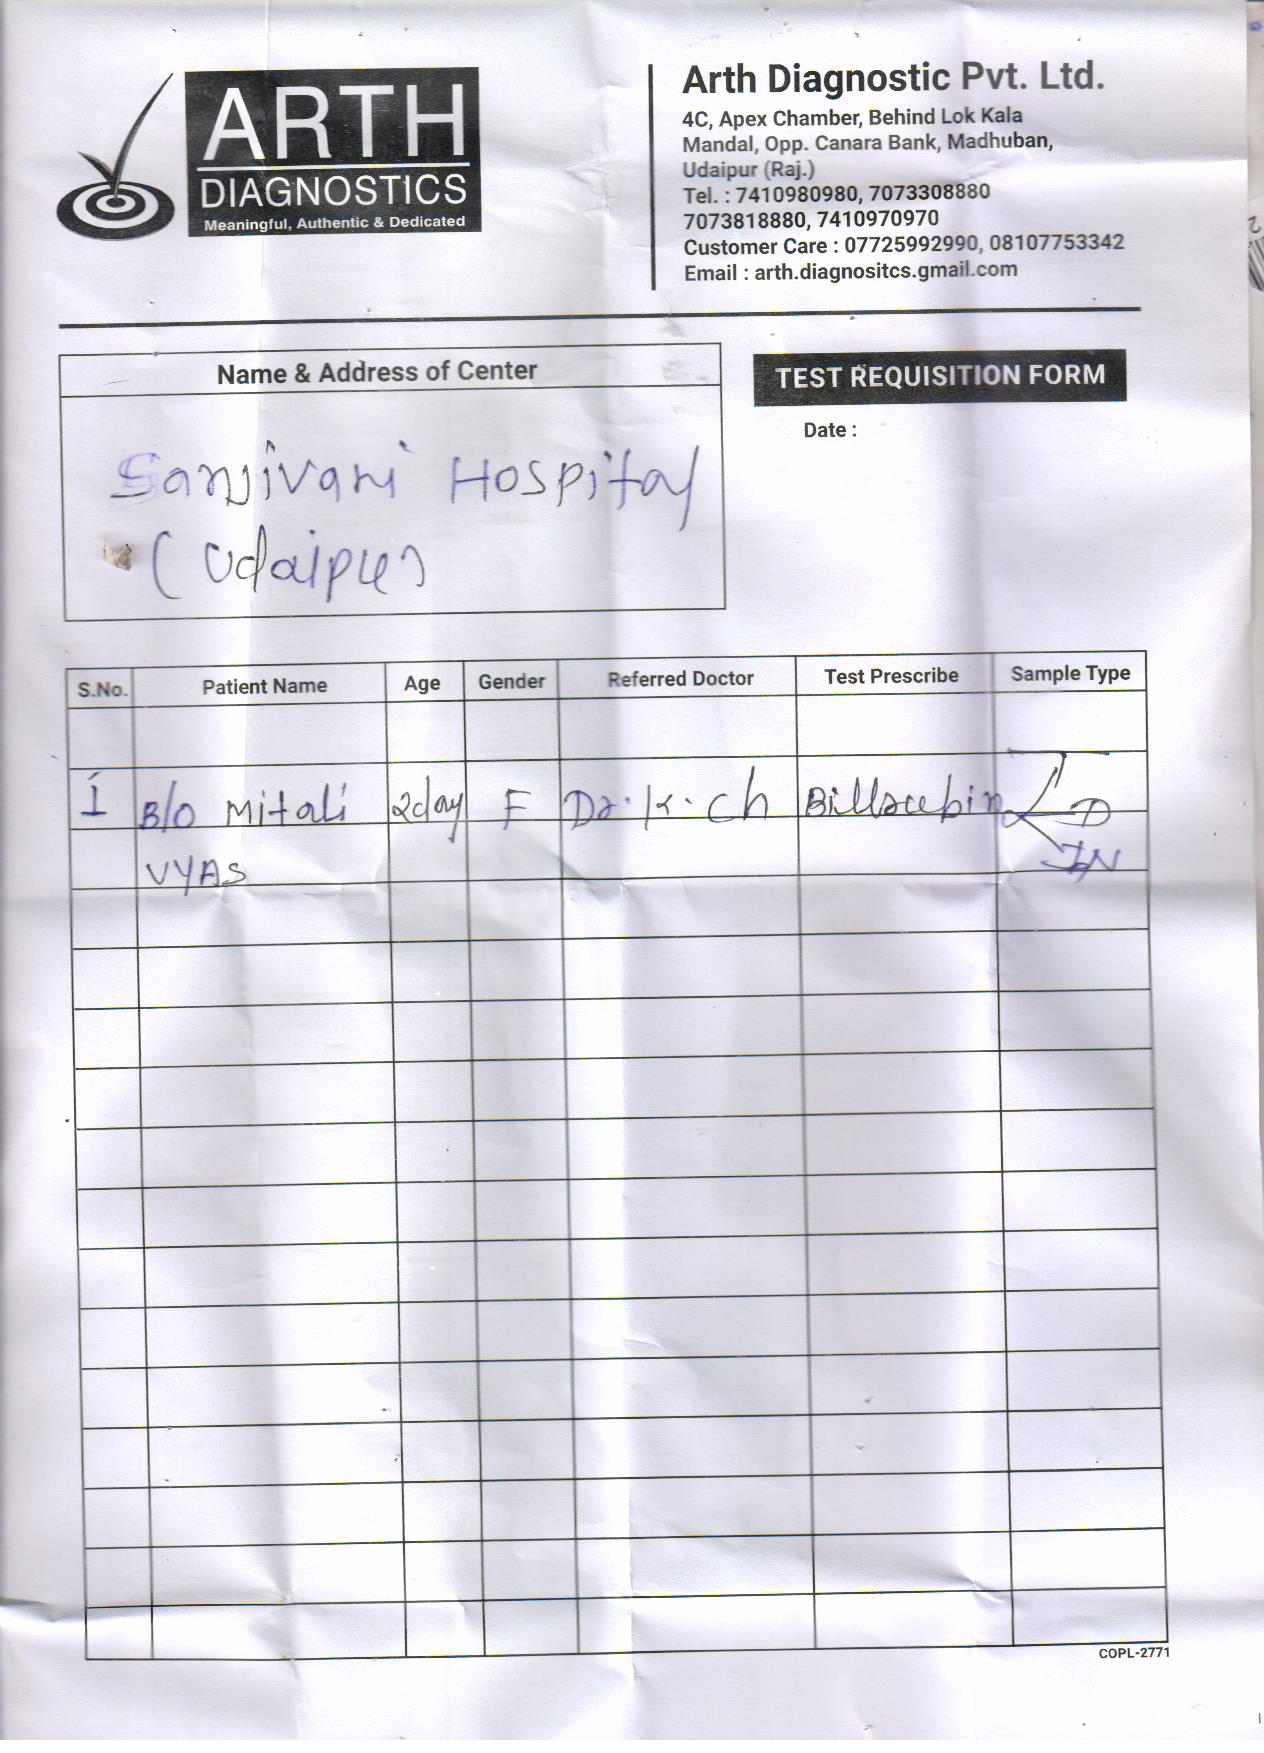 ARTH
DIAGNOSTICS
Meaningful, Authentic & Dedicated
Arth Diagnostic Pvt. Ltd.
4C, Apex Chamber, Behind Lok Kala
Mandal, Opp. Canara Bank, Madhuban,
Udaipur (Raj.)
Tel. : 7410980980, 7073308880
7073818880, 7410970970
Customer Care : 07725992990, 08107753342
Email : arth.diagnositcs.gmail.com
Name & Address of Center
TEST REQUISITION FORM
Date :
Sanjivani Hospital
(Udaipur
S.No. Patient Name Age Gender Referred Doctor Test Prescribe Sample Type
1 B/O Mitali 2day F Dr. K. Ch Billrubin T
D
VYAS IN
COPL-2771